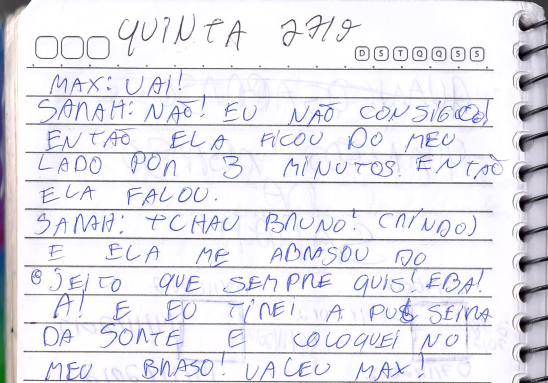 QUINTA 27/9
D S T Q Q S S
MAX: VAI!
SARAH: NÃO! EU NÃO CONSIGO!
ENTÃO ELA FICOU DO MEU
LADO POR 3 MINUTOS. ENTÃO
ELA FALOU.
SARAH: TCHAU BRUNO! (RINDO)
E ELA ME ABRASOU DO
JEITO QUE SEMPRE QUIS! EBA!
A! E EU TIREI A PULSEIRA
DA SORTE E COLOQUEI NO
MEU BRASO! VALEU MAX!